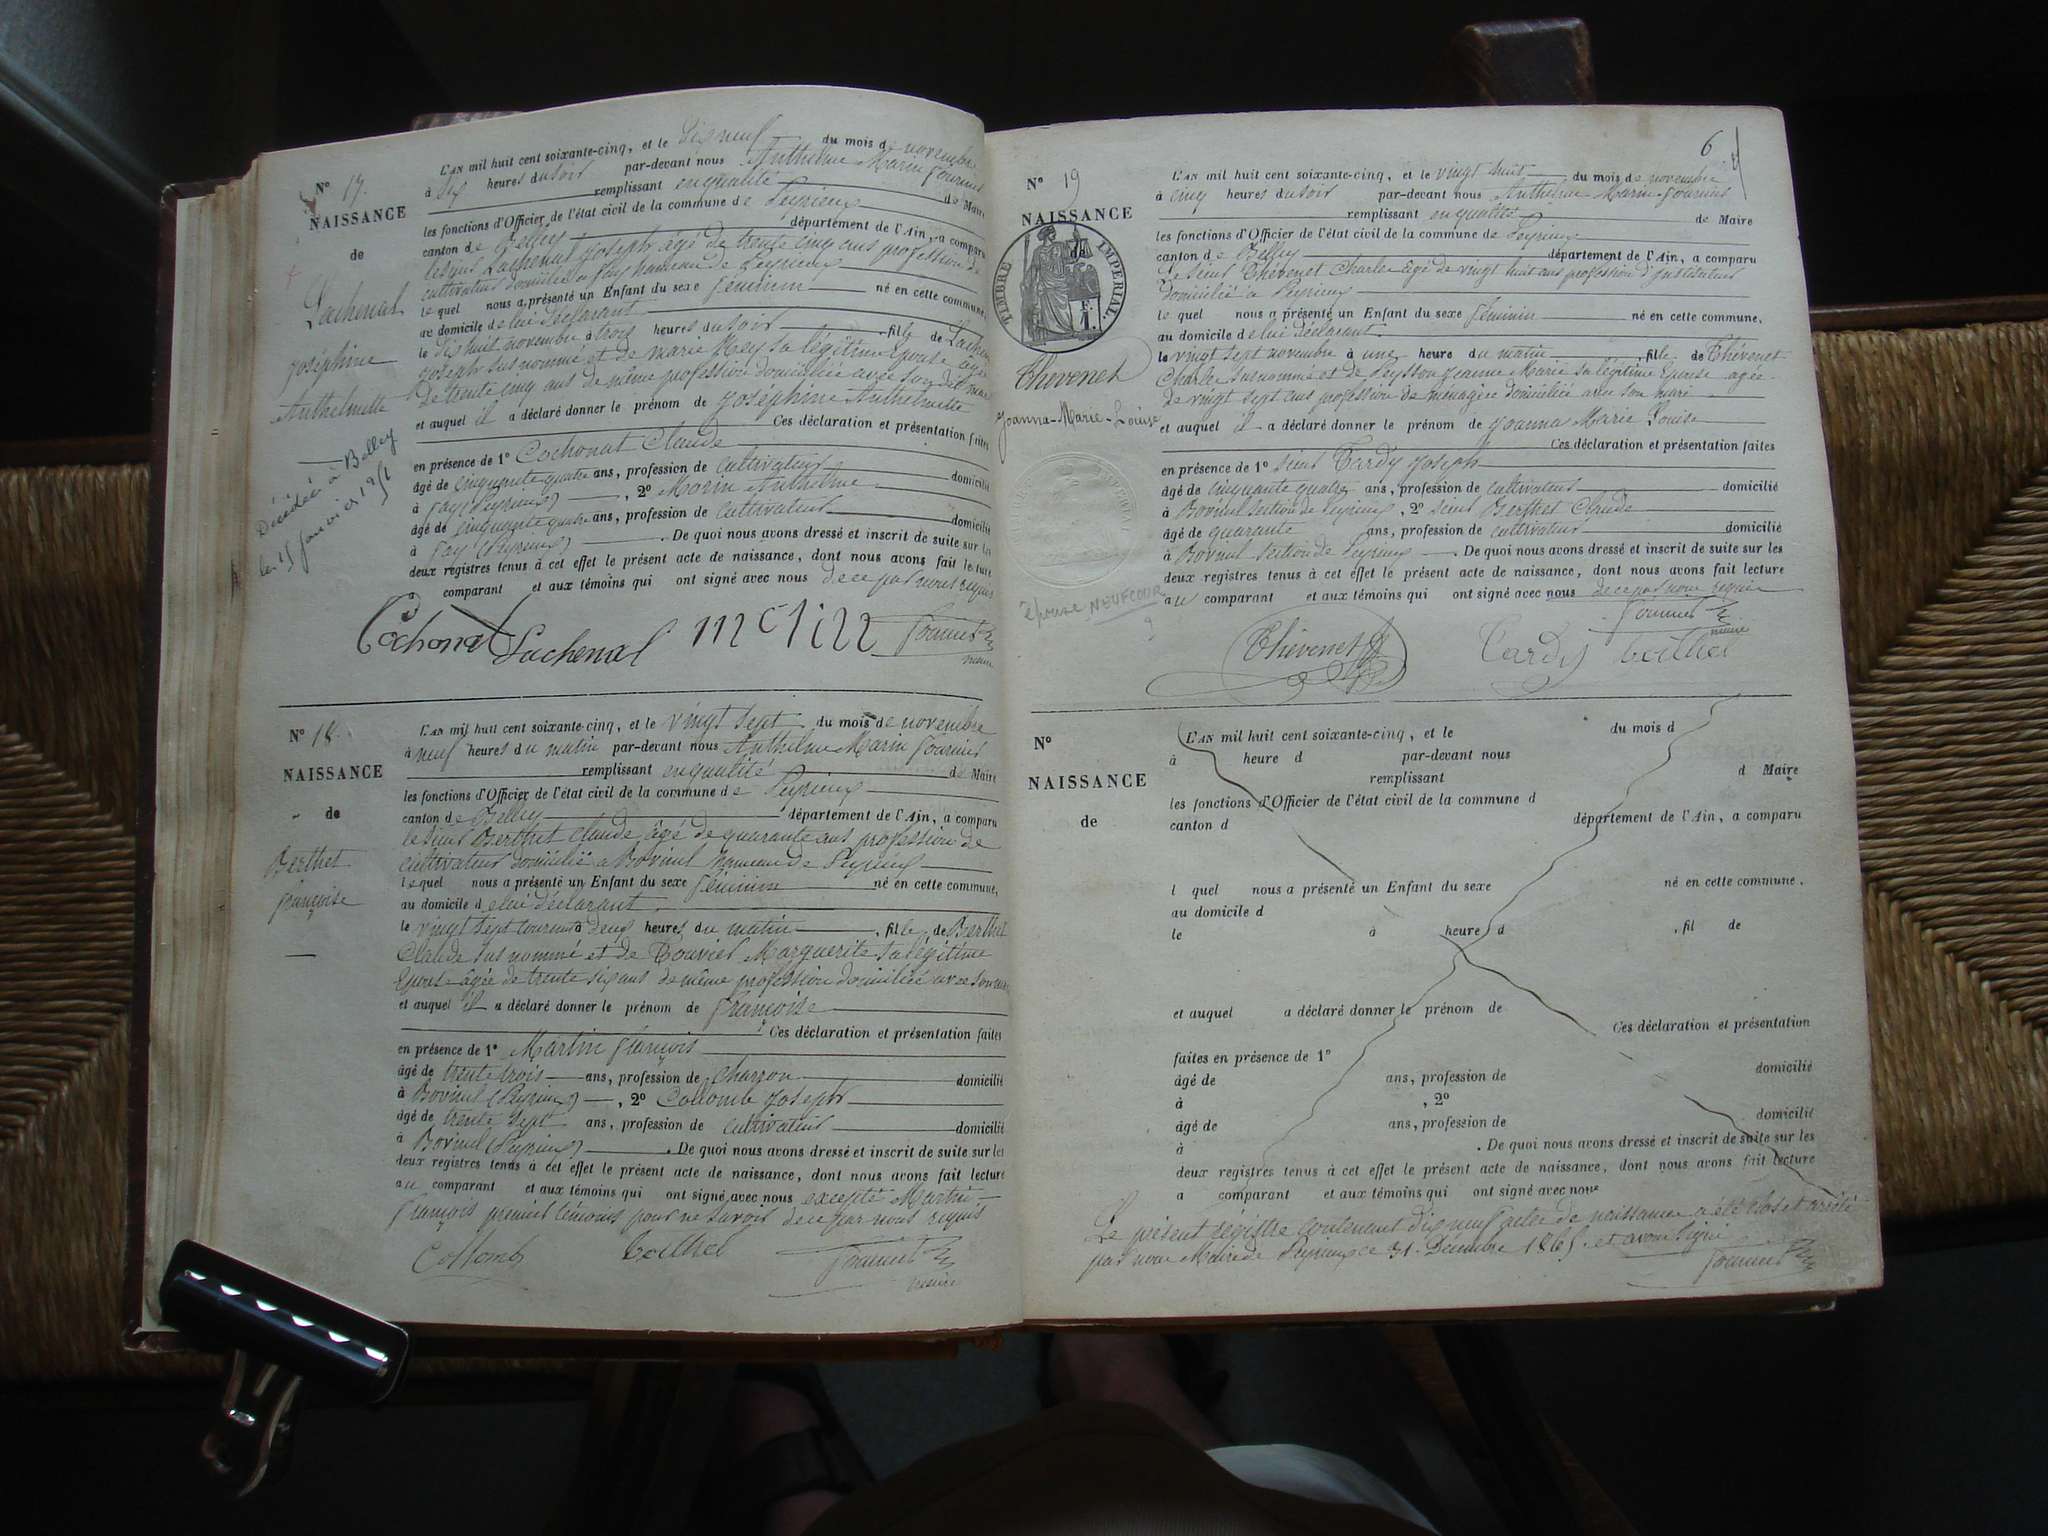 N° 17.
NAISSANCE
de
Lachenal
Joséphine
Anthelmette
Décédée à Belley
le 15 janvier 1951
L'AN mil huit cent soixante-cinq, et le dix neuf du mois de novembre
à six heures du soir par-devant nous Anthelme Marin Fournier
remplissant en qualité de Maire
les fonctions d'Officier de l'état civil de la commune de Peyrieux
canton de Belley département de l'Ain, a comparu
le sieur Lachenal Joseph âgé de trente cinq ans profession de
cultivateur domicilié a Fay hameau de Peyrieux
lequel nous a présenté un Enfant du sexe féminin né en cette commune,
au domicile de lui déclarant
le dix huit novembre à trois heures du soir fille de Lachenal
Joseph sus nommé et de Marie Mey sa légitime Epouse âgée
de trente cinq ans de même profession domiciliée avec son dit mari
et auquel il a déclaré donner le prénom de Joséphine Anthelmette
Ces déclaration et présentation faites
en présence de 1° Cochonat Claude
âgé de cinquante quatre ans, profession de cultivateur domicilié
à Fay (Peyrieux) , 2° Morin Anthelme
âgé de cinquante quatre ans, profession de cultivateur domicilié
à Fay (Peyrieux) . De quoi nous avons dressé et inscrit de suite sur les
deux registres tenus à cet effet le présent acte de naissance, dont nous avons fait lecture
a comparant et aux témoins qui ont signé avec nous de ce par nous requis
Cochonat Lachenal Fournier
maire
N° 18.
NAISSANCE
de
Berthet
Françoise
L'AN mil huit cent soixante-cinq, et le vingt sept du mois de novembre
à neuf heures du matin par-devant nous Anthelme Marin Fournier
remplissant en qualité de Maire
les fonctions d'Officier de l'état civil de la commune de Peyrieux
canton de Belley département de l'Ain, a comparu
le sieur Berthet Claude âgé de quarante ans profession de
cultivateur domicilié a Bovinel hameau de Peyrieux
lequel nous a présenté un Enfant du sexe féminin né en cette commune,
au domicile de lui déclarant.
le vingt sept courant à deux heures du matin , fille de Berthet
Claude sus nommé et de Bouvier Marguerite sa légitime
Epouse âgée de trente six ans de même profession domiciliée avec son mari
et auquel il a déclaré donner le prénom de Françoise
Ces déclaration et présentation faites
en présence de 1° Martin François
âgé de trente trois ans, profession de charron domicilié
à Bovinel (Peyrieux) , 2° Collomb Joseph
âgé de trente sept ans, profession de cultivateur domicilié
à Bovinel (Peyrieux) . De quoi nous avons dressé et inscrit de suite sur les
deux registres tenus à cet effet le présent acte de naissance, dont nous avons fait lecture
au comparant et aux témoins qui ont signé avec nous excepté Martin
François premier témoins pour ne savoir de ce par nous requis
Collomb Berthet Fournier
maire
6
N° 19
NAISSANCE
de
TIMBRE IMPERIAL
F.
1.
Thévenet
Joanna-Marie-Louise
épouse NEUFCOUR
?
L'AN mil huit cent soixante-cinq, et le vingt huit du mois de novembre
à cinq heures du soir par-devant nous Anthelme Marin Fournier
remplissant en qualité de Maire
les fonctions d'Officier de l'état civil de la commune de Peyrieux
canton de Belley département de l'Ain, a comparu
Le sieur Thévenet Charles âgé de vingt huit ans profession d'instituteur
domicilié à Peyrieux
lequel nous a présenté un Enfant du sexe féminin né en cette commune,
au domicile de lui déclarant.
le vingt sept novembre à une heure du matin , fille de Thévenet
Charles susnommé et de Peysson Jeanne Marie sa légitime Epouse agée
de vingt sept ans profession de ménagère domiciliée avec son mari
et auquel il a déclaré donner le prénom de Joanna Marie Louise
Ces déclaration et présentation faites
en présence de 1° sieur Tardy Joseph
âgé de cinquante quatre ans, profession de cultivateur domicilié
à Bovinel section de Peyrieux , 2° sieur Berthet Claude
âgé de quarante ans, profession de cultivateur domicilié
à Bovinel section de Peyrieux . De quoi nous avons dressé et inscrit de suite sur les
deux registres tenus à cet effet le présent acte de naissance, dont nous avons fait lecture
au comparant et aux témoins qui ont signé avec nous de ce par nous requis
Fournier
maire
Thévenet Tardy Berthet
N°
NAISSANCE
de
L'AN mil huit cent soixante-cinq, et le du mois d
à heure d par-devant nous
remplissant d Maire
les fonctions d'Officier de l'état civil de la commune d
canton d département de l'Ain, a comparu
l quel nous a présenté un Enfant du sexe né en cette commune.
au domicile d
le à heure d , fil de
et auquel a déclaré donner le prénom de
Ces déclaration et présentation
faites en présence de 1°
âgé de ans, profession de domicilié
à , 2°
âgé de ans, profession de domicilié
à . De quoi nous avons dressé et inscrit de suite sur les
deux registres tenus à cet effet le présent acte de naissance, dont nous avons fait lecture
a comparant et aux témoins qui ont signé avec nous
Le présent régistre contenant dix neuf actes de naissance a été clos et arrêté
par nous Maire de Peyrieux ce 31 Décembre 1865. et avons signé
Fournier